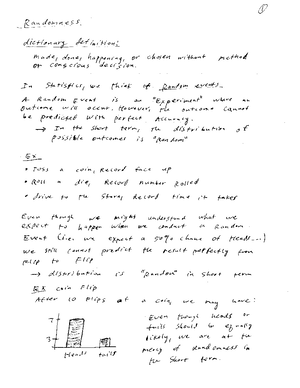 ①
Randomness
dictionary definition:
made, done, happening, or chosen without method
or conscious decision.
In Statistics, we think of Random events.
A Random Event is an "Experiment" where an
outcome will occur. However, the outcome cannot
be predicted with perfect accuracy.
→ In the short term, the distribution of
possible outcomes is "Random"
Ex
• Toss a coin, Record face up
• Roll a die, Record Number Rolled
• drive to the Store, Record time it takes
Even though we might understand what we
expect to happen when we conduct a Random
Event (i.e. we expect a 50% chance of Heads...)
we still cannot predict the result perfectly from
flip to flip
→ distribution is "Random" in short term
Ex coin Flip
After 10 flips of a coin, we may have:
7
3
Heads tails
Even though heads or
tails should be equally
likely, we are at the
mercy of Randomness in
the Short term.